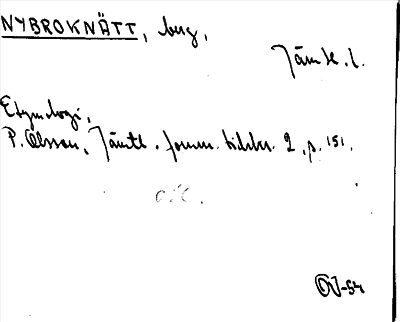 NYBROKNÄTT, berg,
Jämtl.l.
Etymologi,
P. Olsson, Jämtl. fornm. tidskr. 2, p. 151.